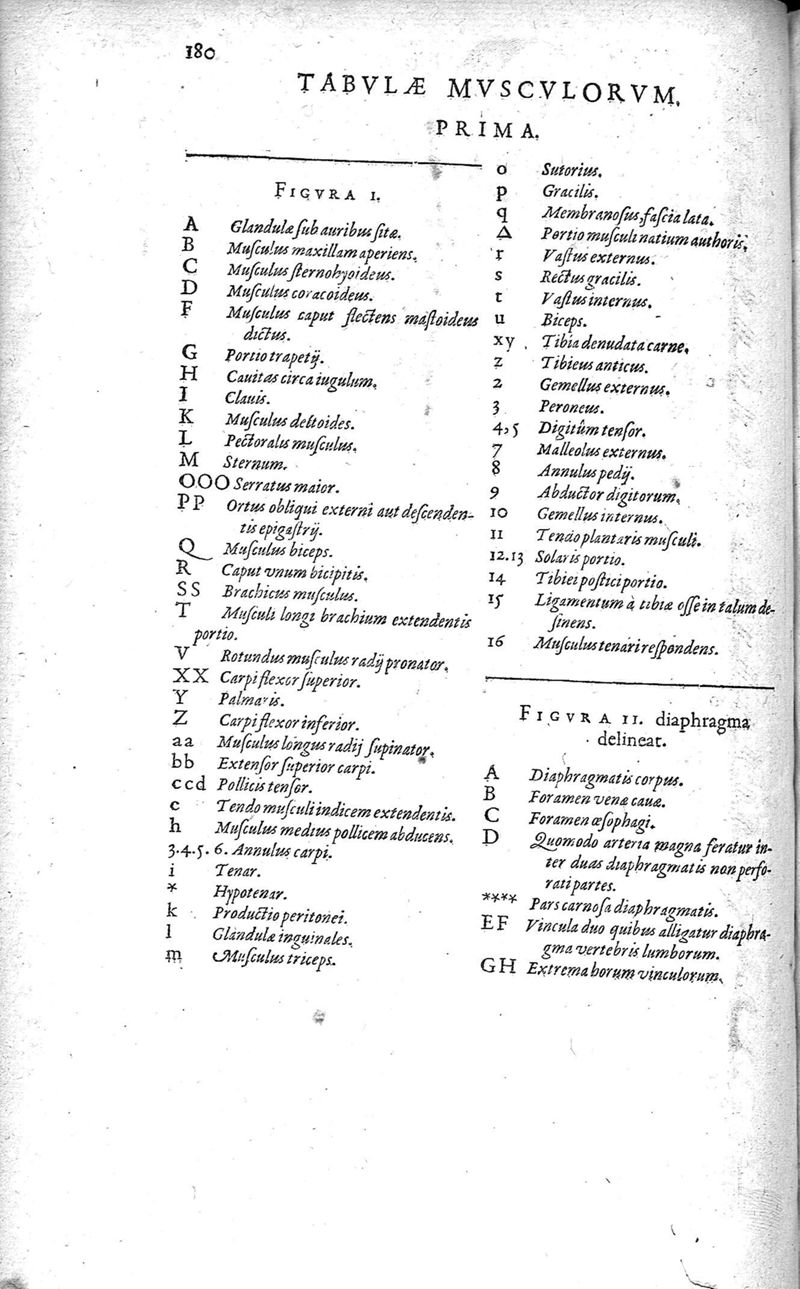 180
TABVLÆ MVSCVLORVM.
PRIMA.
FIGVRA I.
A Glandulæ ſub auribus ſitæ.
B Muſculus maxillam aperiens.
C Muſculus ſternohyoideus.
D Muſculus coracoideus.
F Muſculus caput flectens maſtoideus
dictus.
G Portio trapetij.
H Cauitas circa iugulum.
I Clauis.
K Muſculus deltoides.
L Pectoralis muſculus.
M Sternum.
OOO Serratus maior.
PP Ortus obliqui externi aut deſcenden-
tis epigaſtrij.
Q Muſculus biceps.
R Caput vnum bicipitis.
SS Brachieus muſculus.
T Muſculi longi brachium extendentis
portio.
V Rotundus muſculus radij pronator.
XX Carpi flexor ſuperior.
Y Palmaris.
Z Carpi flexor inferior.
aa Muſculus longus radij ſupinator.
bb Extenſor ſuperior carpi.
ccd Pollicis tenſor.
e Tendo muſculi indicem extendentis.
h Muſculus medius pollicem abducens.
3.4.5.6. Annulus carpi.
i Tenar.
* Hypotenar.
k Productio peritonei.
l Glandulæ inguinales.
m Muſculus triceps.
o Sutorius.
p Gracilis.
q Membranoſus, faſcia lata.
Δ Portio muſculi natium authoris.
r Vaſtus externus.
s Rectus gracilis.
t Vaſtus internus.
u Biceps.
xy Tibia denudata carne.
z Tibieus anticus.
2 Gemellus externus.
3 Peroneus.
4,5 Digitûm tenſor.
7 Malleolus externus.
8 Annulus pedij.
9 Abductor digitorum.
10 Gemellus internus.
11 Tendo plantaris muſculi.
12.13 Solaris portio.
14 Tibiei poſtici portio.
15 Ligamentum à tibiæ oſſe in talum de-
ſinens.
16 Muſculus tenari reſpondens.
FIGVRA II. diaphragma
delineat.
A Diaphragmatis corpus.
B Foramen venæ cauæ.
C Foramen œſophagi.
D Quomodo arteria magna feratur in-
ter duas diaphragmatis non perfo-
rati partes.
**** Pars carnoſa diaphragmatis.
EF Vincula duo quibus alligatur diaphra-
gma vertebris lumborum.
GH Extrema horum vinculorum.